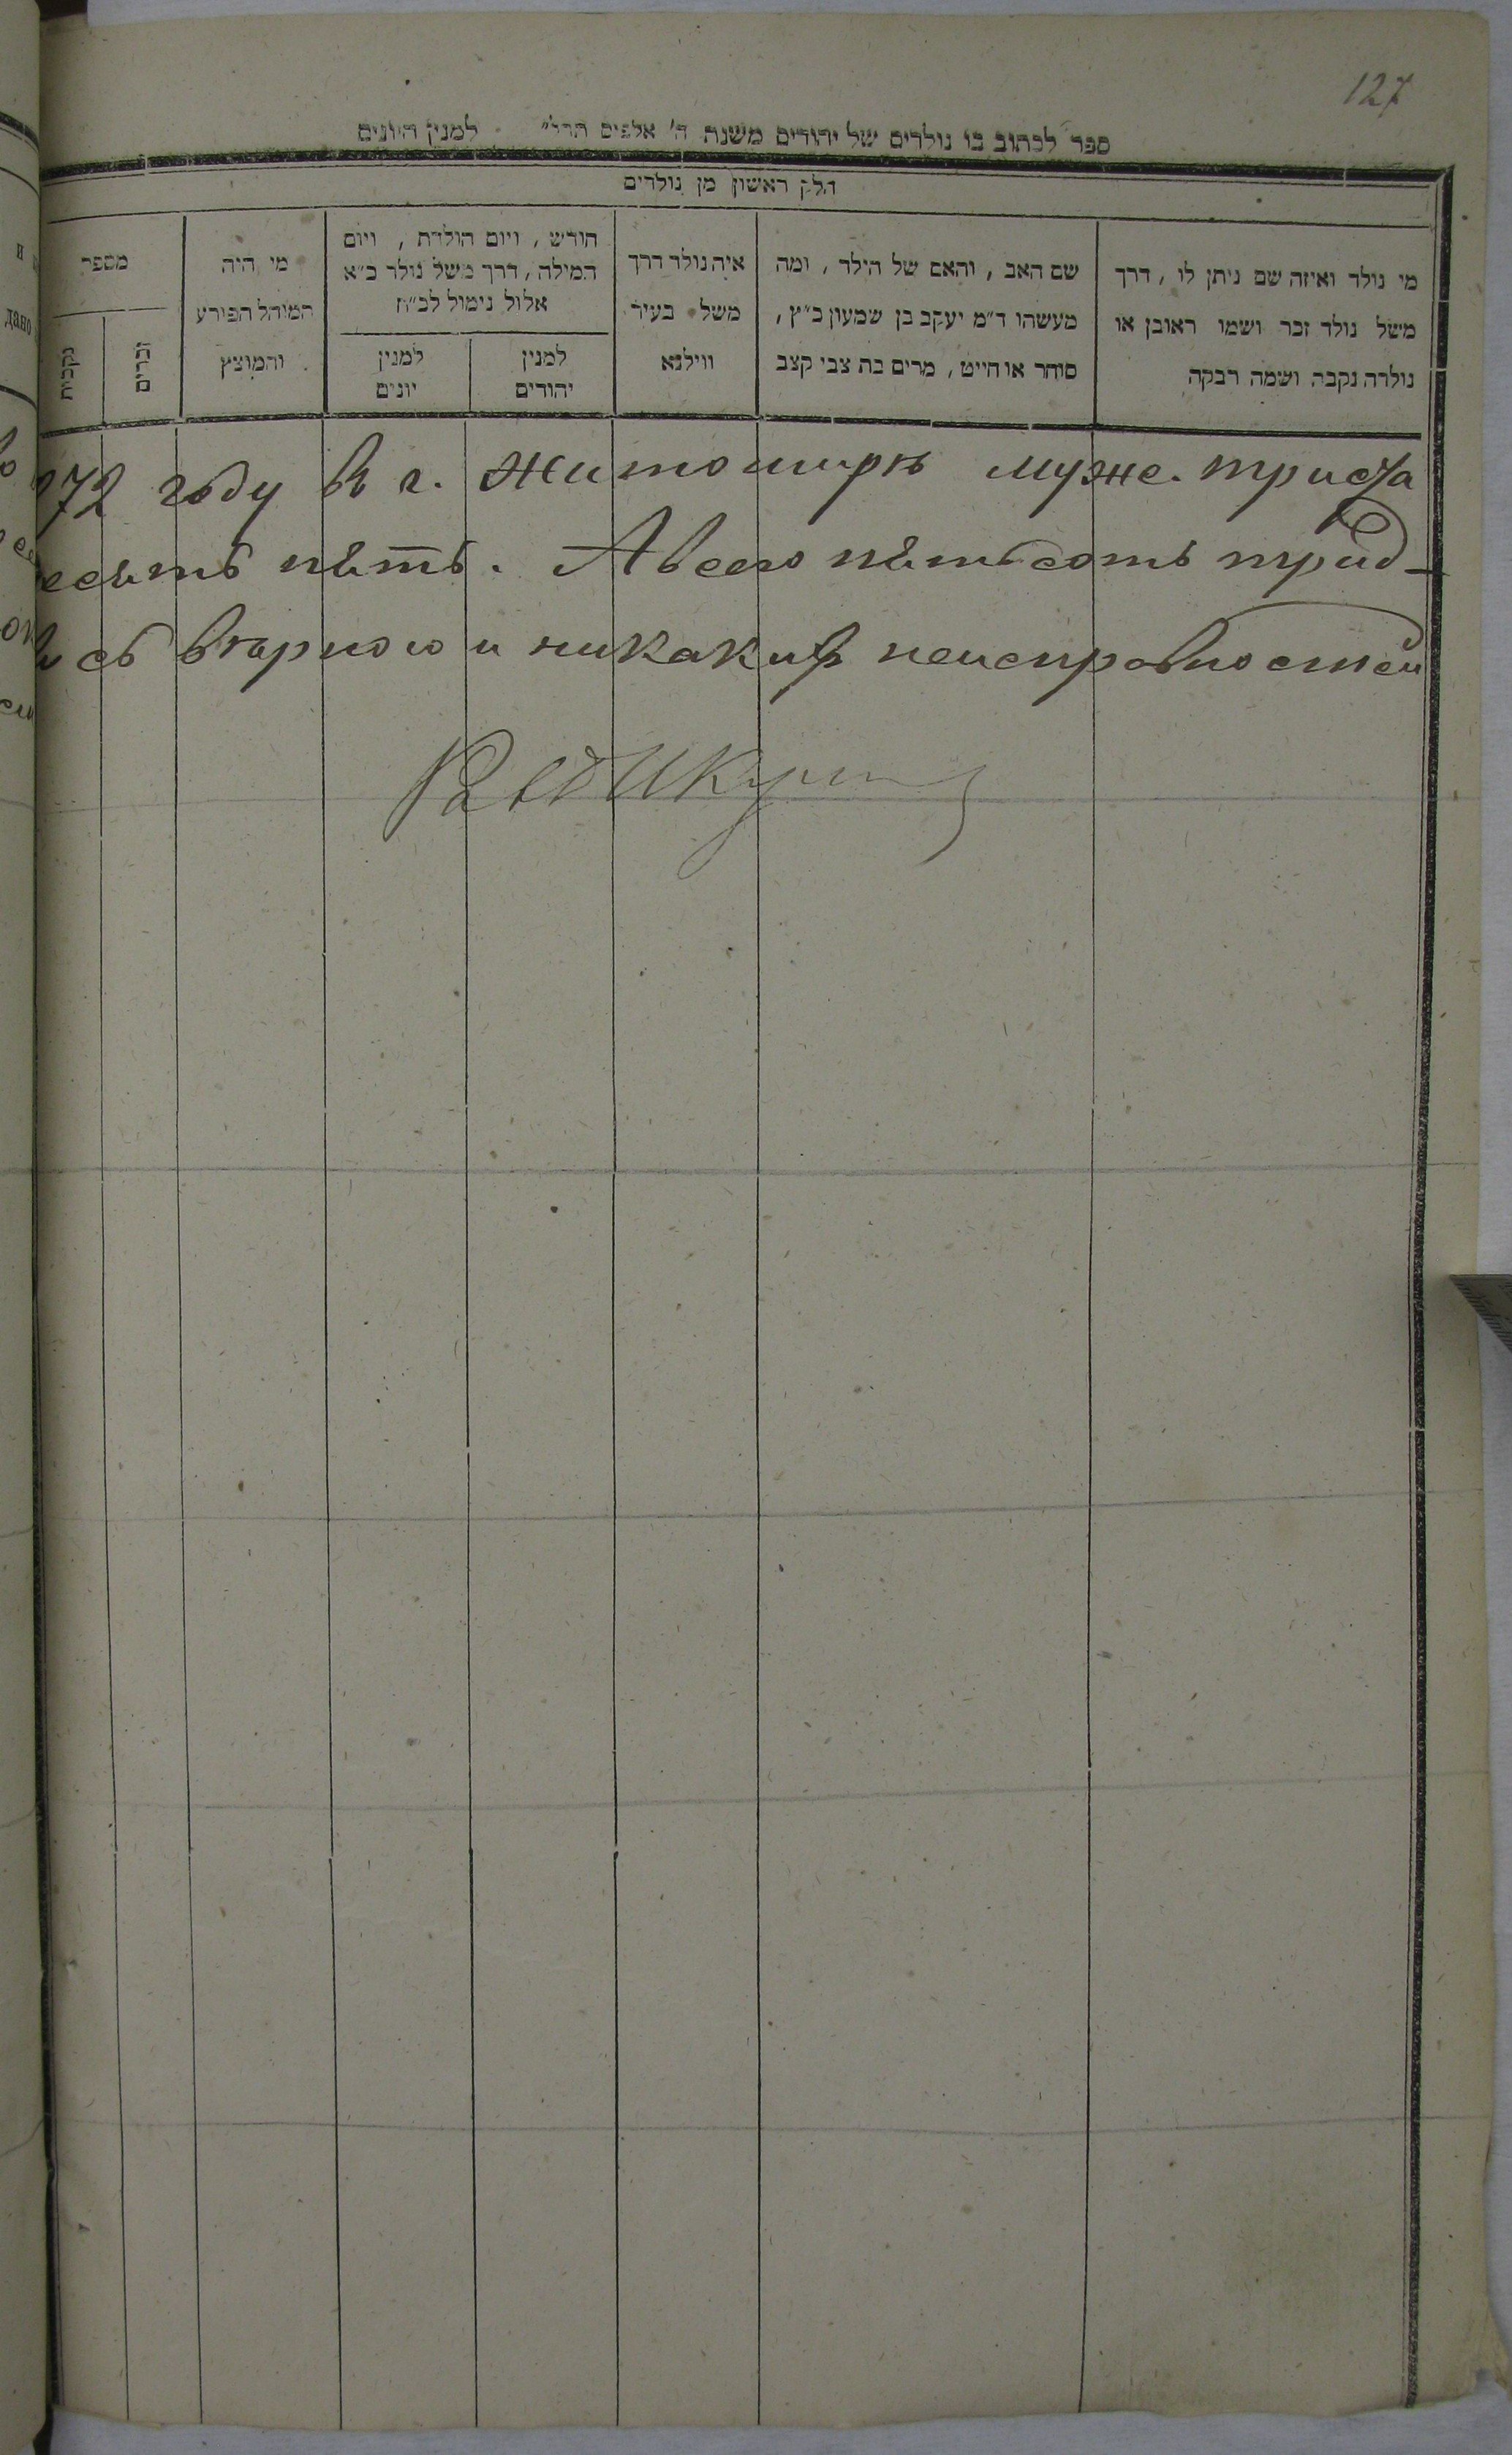 127
ספר לכתוב בו נולדים של יהודים משנת ה' אלפים תרל״ למנין היונים
חלק ראשון מן נולדים
מי נולד ואיזה שם ניתן לו, דרך
משל נולד זכר ושמו ראובן או
נולדה נקבה ושמה רבקה
שם האב, והאם של הילד, ומה
מעשהו ד״מ יעקב בן שמעון כ״ץ,
סוחר או חייט, מרים בת צבי קצב
איה נולד דרך
משל בעיר
ווילנא
חודש, ויום הולדת, ויום
המילה, דרך משל נולד כ״א
אלול נימול לכ״ח
למנין
יהודים
למנין
יונים
מי היה
המוהל הפורע
והמוצץ
מספר
זכרים
נקבות
72 году въ г. Житомирѣ муже. триста
есять пять. А всего пятьсотъ трид-
сь вѣрною и никакихъ неисправностей